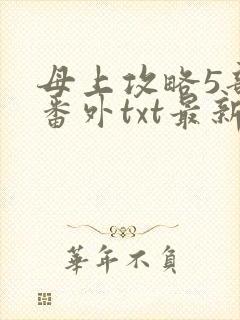 母上攻略5部
番外txt最新
華年不負